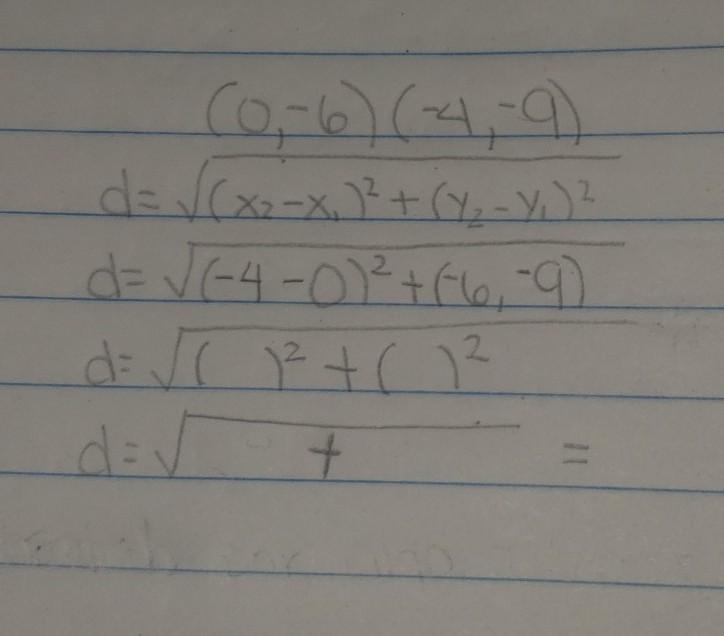 (0,-6)(-4,-9)
d=√(x₂-x₁)²+(y₂-y₁)²
d=√(-4-0)²+(-6,-9)
d=√( )²+( )²
d=√ + =